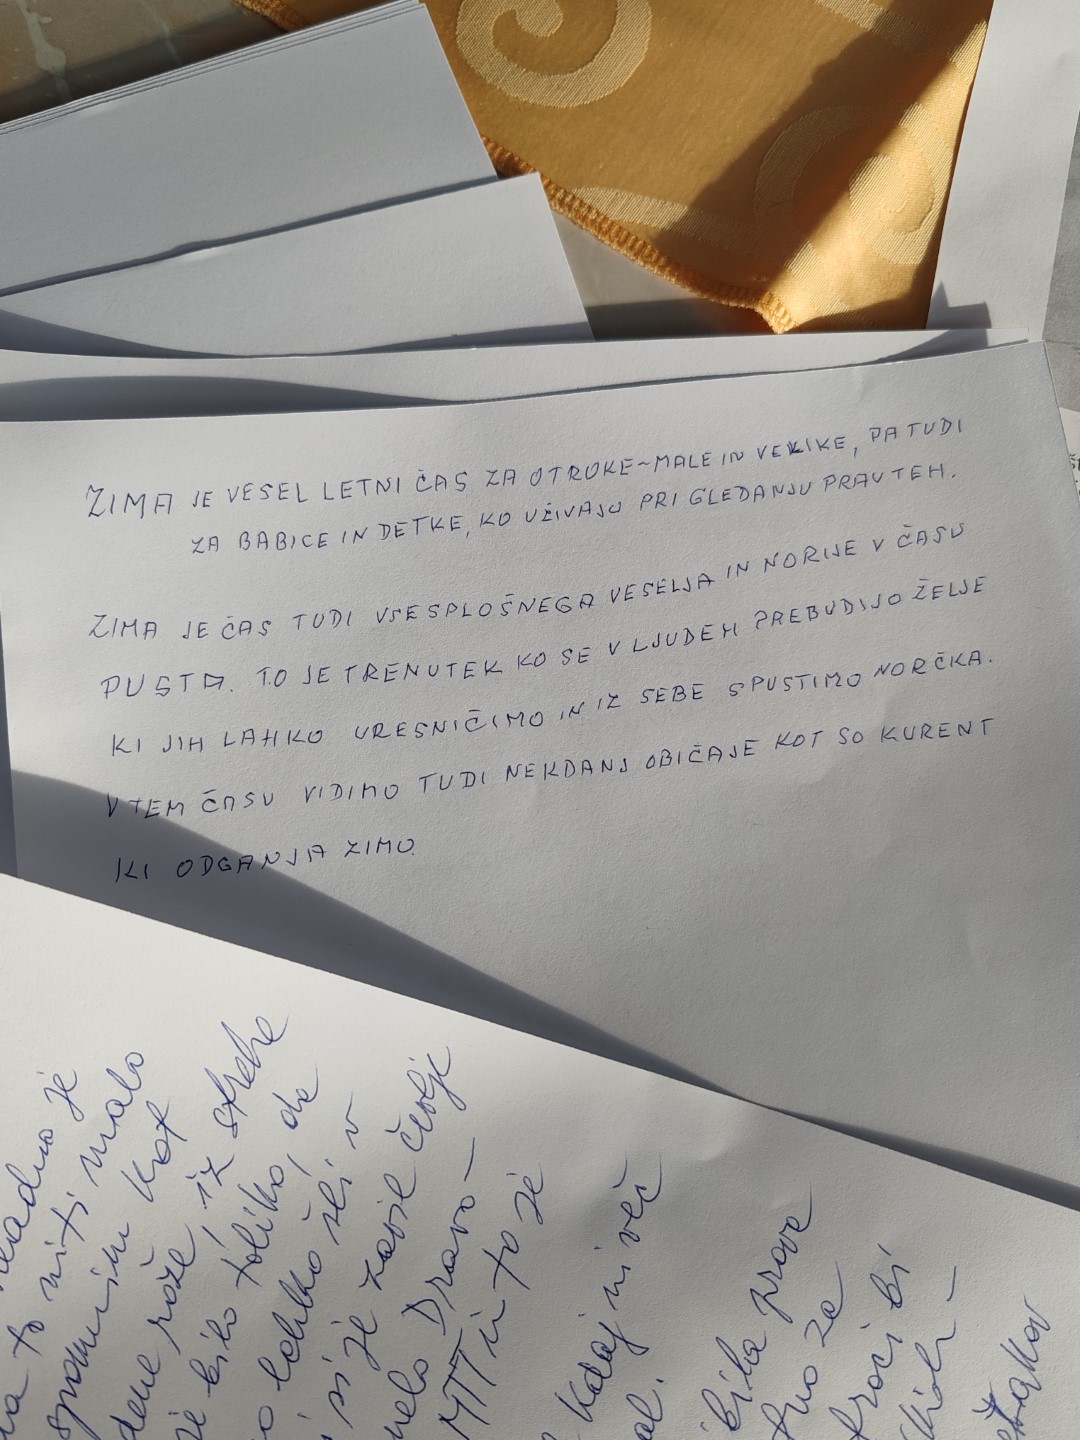 ZIMA JE VESEL LETNI ČAS ZA OTROKE-MALE IN VELIKE, PA TUDI
ZA BABICE IN DETKE, KO UŽIVAJO PRI GLEDANJU PRAV TEH.
ZIMA JE ČAS TUDI VSESPLOŠNEGA VESELJA IN NORIJE V ČASU
PUSTA. TO JE TRENUTEK KO SE V LJUDEH PREBUDIJO ŽELJE
KI JIH LAHKO URESNIČIMO IN IZ SEBE SPUSTIMO NORČKA.
V TEM ČASU VIDIMO TUDI NEKDANJ OBIČAJE KOT SO KURENT
KI ODGANJA ZIMO.
je
to niti malo
spominim kot
rože iz strehe
je bilo toliko, da
lahko šli v
si je zavil čevlje
Dravo-
MTT in to je
kdaj ni več
bila prave
za
bi